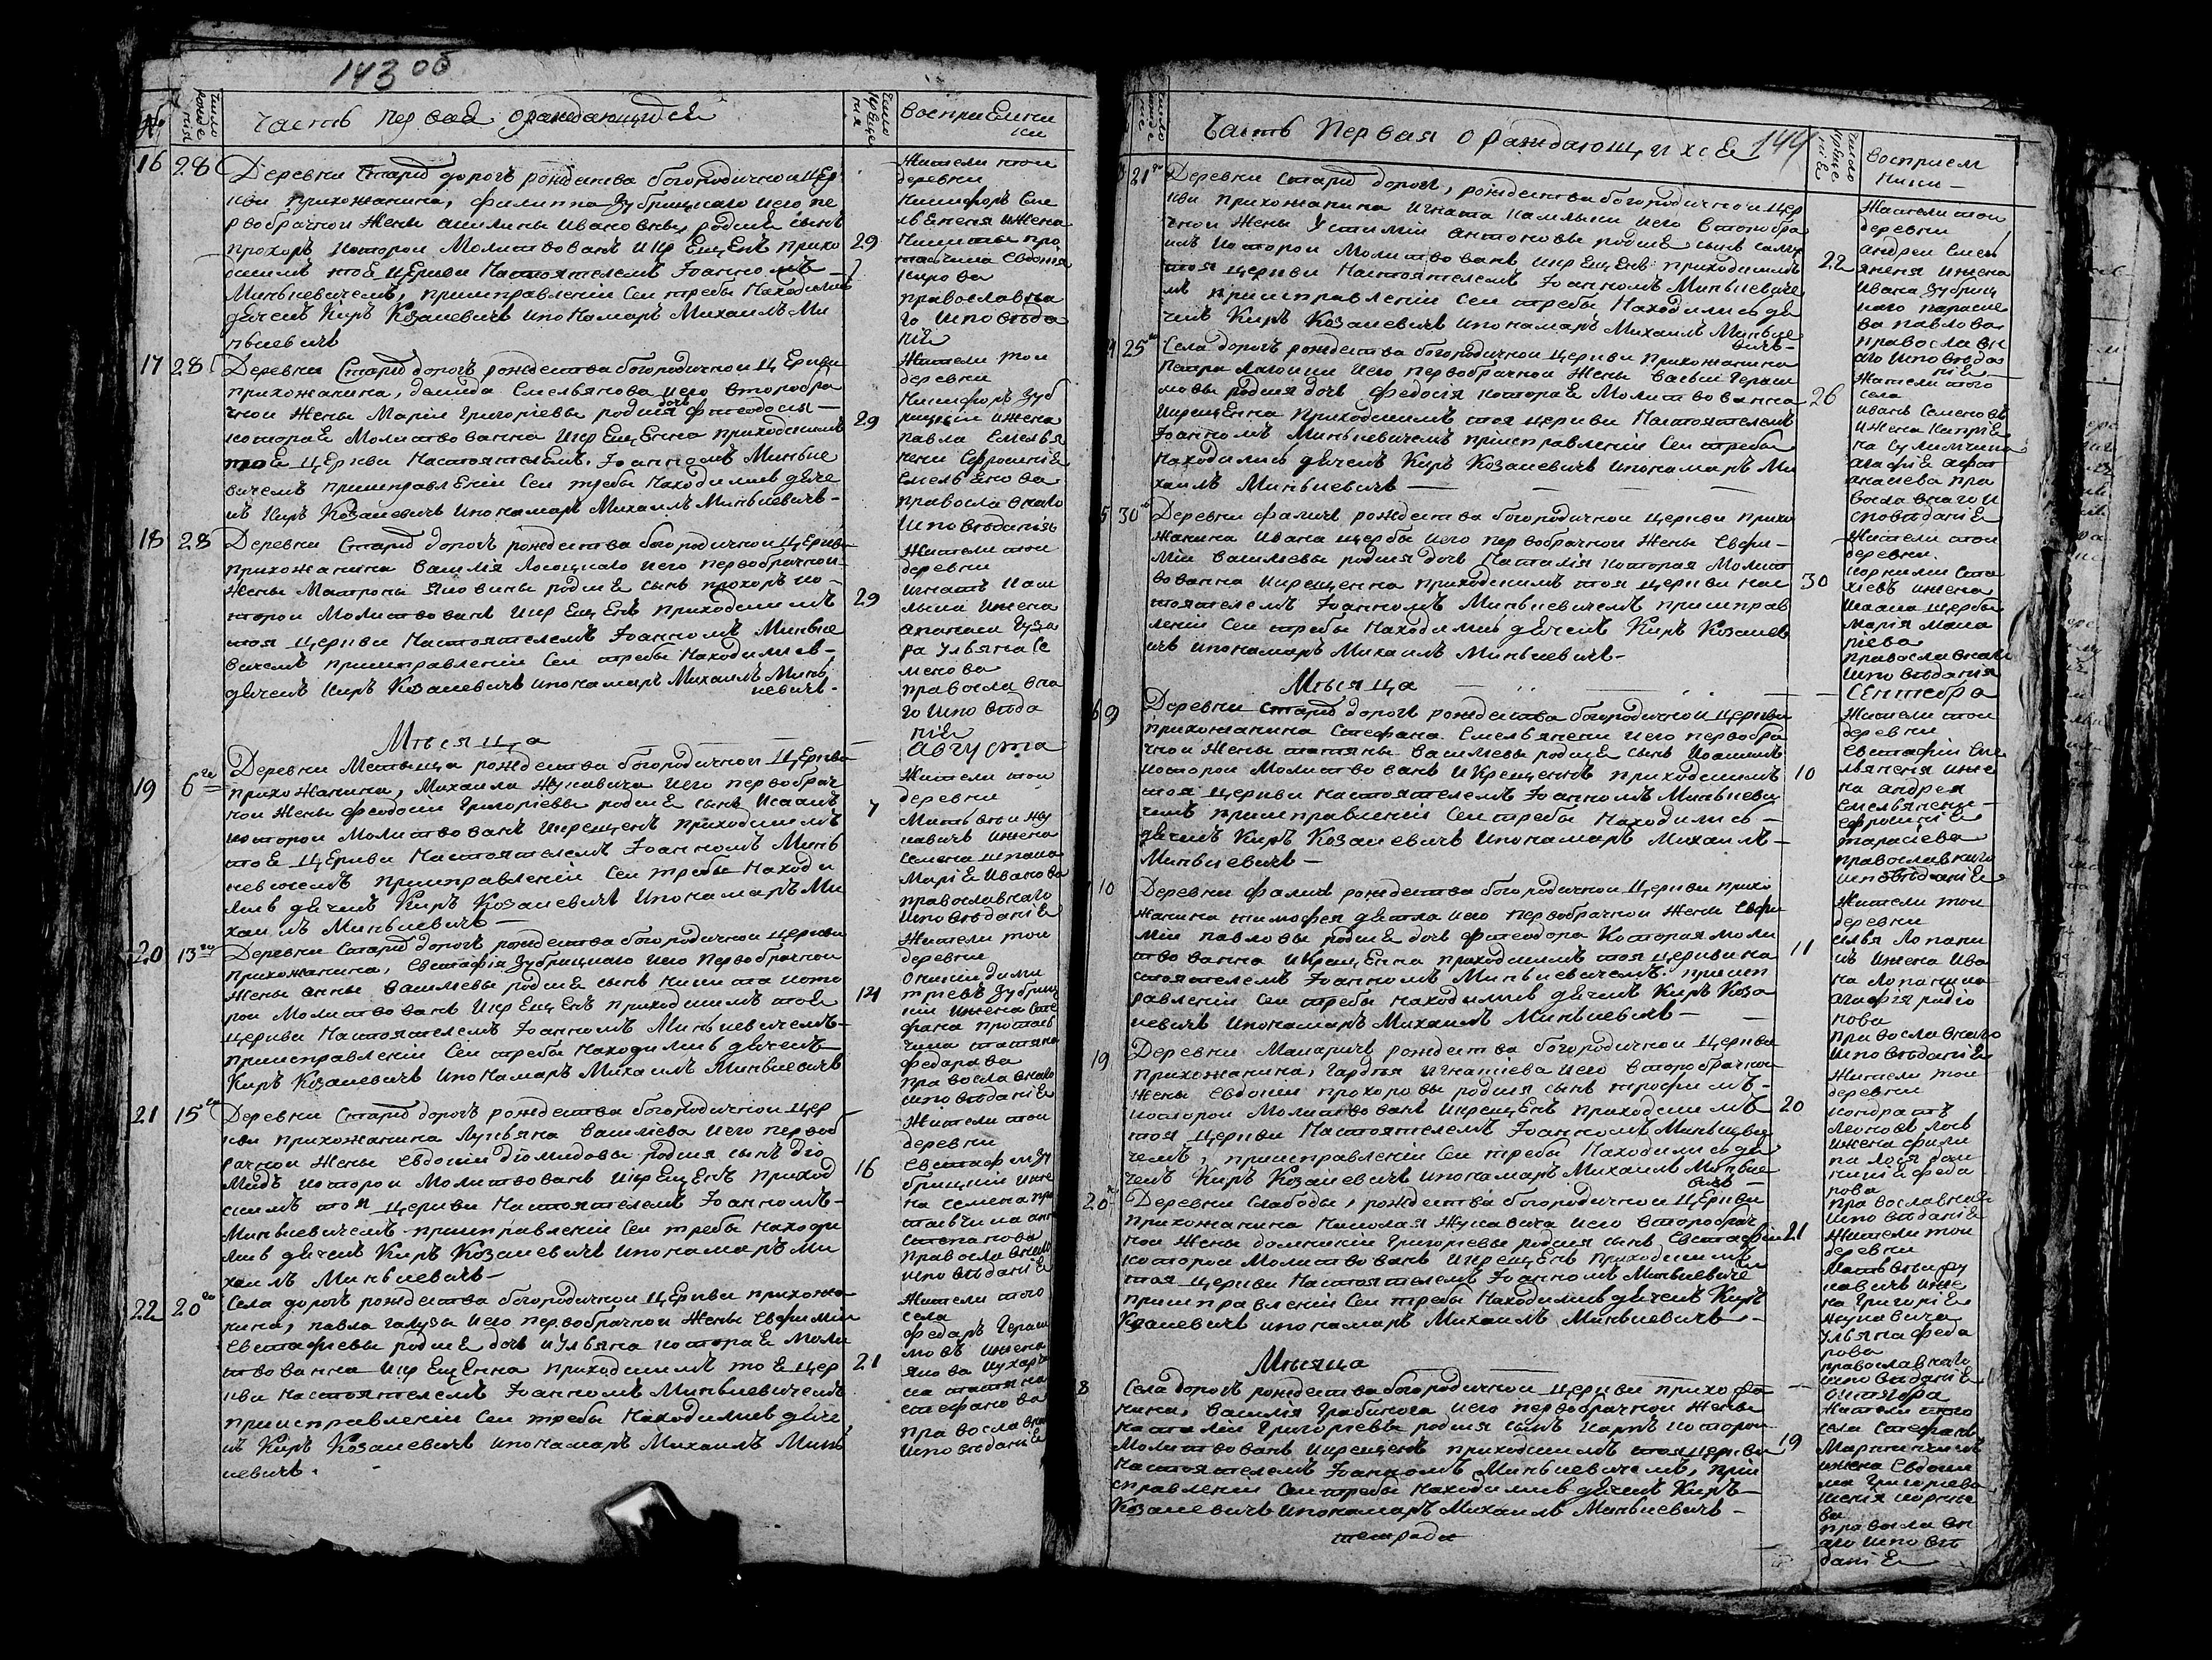 143 об
№
число рожденія
Часть первая ораждающихся
число крещенія
восприемники
16 28 Деревни Стари дорогъ рожденства богородичнои цер
кви прихожанина, филиппа Зубрицкаго иего пе
рвобрачнои жены акилины Ивановны, родился сынъ
прохоръ которои молитвованъ икрещенъ прихо
29
дскимъ тоя церкви настоятелемъ Іоанномъ
Минькевичемъ, приисправленіи сеи требы находились
дячекъ Киръ Козакевичъ ипономаръ Михаилъ Ми
нькевичъ
Жители тои
деревни
православна
го исповѣда
нія
17 28 Деревни Стари дорогъ рождества богородичнои церкви
прихожанина, демида Емельянова иего второбра
чнои жены Маріи григоріевы родися дочь фтеодосия
которая молитвованна икрещенна приходскимъ
29
тоя церкви настоятелемъ Іоанномъ Минкке
вичемъ приисправленіи сеи требы находились дяче
къ Киръ Козакевичъ ипономаръ Михаилъ Минькевичъ
Жители тои
деревни
Никифоръ Зуб
рицкіи ижена
павла Емелья
православнаго
исповѣданія
18 28 Деревни Стари дорогъ рождества богородичнои церкви
прихожанина василія Лосоцкаго иего первобрачнои
жены Матроны Яковины родися сынъ прохоръ ко
торои молитвованъ икрещенъ приходскимъ
29
тоя церкви настоятелемъ Іоанномъ Минкке
вичемъ приисправленіи сеи требы находились
дячекъ Киръ Козакевичъ ипономаръ Михаилъ Минь
кевичъ
Жители тои
деревни
игнатъ Кам
лыка ижена
ра Ульяна Се
менова
православна
го исповѣда
нія
Мѣсяца
августа
19 6го Деревни Метявица рождества богородичнои церкви
прихожанина, Михаила Жукавича иего первобрач
нои жены феодосіи григоріевы родися сынъ Исаакъ
7
которои молитвованъ икрещенъ приходскимъ
тоя церкви настоятелемъ Іоанномъ Минь
кевичемъ приисправленіи сеи требы находи
лись дячекъ Киръ Козакевичъ ипономаръ Ми
хаилъ Минькевичъ
Жители тои
деревни
Матвѣи Жу
кавичъ ижена
Семена шпака
Марія Иванова
православнаго
исповѣданія
20 13го Деревни Стари дорогъ рождества богородичнои церкви
прихожанина, Евстафія Зубрицкаго иего первобрачнои
жены анны василіевы родися сынъ никита кото
14
рои молитвованъ икрещенъ приходскимъ тоя
церкви настоятелемъ Іоанномъ Минькевичемъ
приисправленіи сеи требы находились дячекъ
Киръ Козакевичъ ипономаръ Михаилъ Минькевичъ
Жители тои
деревни
тріевъ Зубриц
кіи ижена Сте
фана протась
чика татяна
федарова
православнаго
исповѣданія
21 15го Деревни Стари дорогъ рождества богородичнои цер
кви прихожанина Лукьяна василіева иего первоб
рачнои жены Евдокіи діомидовы родися сынъ діо
16
мидъ которои молитвованъ икрещенъ приход
скимъ тоя церкви настоятелемъ Іоанномъ
Минькевичемъ приисправленіи сеи требы находи
лись дячекъ Киръ Козакевичъ ипономаръ Ми
хаилъ Минькевичъ
Жители тои
деревни
Евстафіи Зу
брицкіи иже
на семена про
степанова
православнаго
исповѣданія
22 20го Села дорогъ рождества богородичнои церкви прихожа
нина, павла галузы иего первобрачнои жены Евфиміи
Евстафіевы родися дочь иульяна которая моли
21
твованна икрещенна приходскимъ тоя цер
кви настоятелемъ Іоанномъ Минькевичемъ
приисправленіи сеи требы находились дяче
къ Киръ Козакевичъ ипономаръ Михаилъ Минь
кевичъ.
Жители того
села
федаръ гераси
мовъ ижена
якова кухарчи
ка татяна
стефанова
православнаго
исповѣданія
Часть Первая о раждающихся 144
число крещенія
восприемники
21го Деревни Стари дорогъ, рождества богородичнои цер
кви прихожанина Игната Камлыки иего второбра
чнои жены Устиміи антоновы родися сынъ самуи
22
илъ которои молитвованъ икрещенъ приходскимъ
тоя церкви настоятелемъ Іоанномъ Минькевиче
мъ приисправленіи сеи требы находились дя
чекъ Киръ Козакевичъ ипономаръ Михаилъ Минкке
вичъ
Жители тои
деревни
андреи Емел
яненя ижена
Ивана Зубриц
каго параске
ва павлова
православн
аго исповѣда
нія
25го Села дорогъ рождества богородичнои церкви прихожанина
26
мовы родися дочь Федосія которая молитвованна
икрещенна приходскимъ тоя церкви настоятелемъ
Іоанномъ Минькевичемъ приисправленіи сеи требы
находились дячекъ Киръ Козакевичъ ипономаръ Ми
хаилъ Минькевичъ
Жители того
села
иванъ Семеновъ
агафія афа
насиева пра
вославнаго и
сповѣданія
5 30 Деревни фаличъ рождества богородичнои церкви прихо
жанина Ивана щерба иего первобрачнои жены Евфи
міи василіевы родися дочь Наталія которая молит
30
вованна икрещенна приходскимъ тоя церкви нас
тоятелемъ Іоанномъ Минькевичемъ приисправ
леніи сеи требы находились дячекъ Киръ Козакев
ичъ ипономаръ Михаилъ Минькевичъ
Жители тои
деревни.
ижена
Исака щербы
марія мака
ріева
православнаго
исповѣданія
Мѣсяца
Сентебра
6 9 Деревни Стари дорогъ рождества богородичнои церкви
прихожанина Стефана Емельянени иего первобра
чнои жены татяны василіевы родися сынъ Иоакимъ
10
которои молитвованъ икрещенъ приходскимъ
тоя церкви настоятелемъ Іоанномъ Минькеви
чемъ приисправленіи сеи требы находились
дячекъ Киръ Козакевичъ ипономаръ Михаилъ
Минькевичъ
Жители тои
деревни
Евстафіи Еме
льяненя иже
на андрея
Емельянени
Ефросинія
тарасіева
православнаго
исповѣданія
10 Деревни фаличъ рождества богородичнои церкви прихо
жанина тимофея дятла иего первобрачнои жены Евфи
міи павловы родися дочь фтеодора которая моли
11
твованна икрещенна приходскимъ тоя церкви на
стоятелемъ Іоанномъ Минькевичемъ приисп
равленіи сеи требы находились дячекъ Киръ Коза
кевичъ ипономаръ Михаилъ Минькевичъ
Жители тои
деревни
илья Лопани
къ ижена Ива
на Лопаника
агафія радіо
нова
православнаго
исповѣданія
19 Деревни Макаричъ рождества богородичнои церкви
прихожанина, гардѣя Игнатіева иего второбрачнои
жены Евдокіи прохоровы родися сынъ трофимъ
20
которои молитвованъ икрещенъ приходскимъ
тоя церкви настоятелемъ Іоанномъ Минькеви
чемъ, приисправленіи сеи требы находились дя
чекъ Киръ Козакевичъ ипономаръ Михаилъ Минкке
вичъ
Жители тои
деревни
кондратъ
Леоновъ лось
ижена фили
па лося дом
никія феда
рова
православнаго
исповѣданія
20 Деревни Слабоды, рождества богородичнои церкви
прихожанина николая Жукавича иего второбрач
нои жены домникіи григоріевы родися сынъ Евстафіи
21
которои молитвованъ икрещенъ приходскимъ
тоя церкви настоятелемъ Іоанномъ Минькевиче
приисправленіи сеи требы находились дячекъ Киръ
Козакевичъ ипономаръ Михаилъ Минькевичъ
Жители тои
деревни
Матвѣи Жу
кавичъ иже
на григорія
жукавича
Ульяна феда
рова
православнаго
исповѣданія
Мѣсяца
октября
8 Села дорогъ рождества богородичнои церкви прихожа
нина, василія грабинога иего первобрачнои жены
наталіи григоріевы родися сынъ карпъ которои
19
молитвованъ икрещенъ приходскимъ тоя церкви
настоятелемъ Іоанномъ Минькевичемъ, при
справленіи сеи требы находились дячекъ Киръ
Козакевичъ ипономаръ Михаилъ Минькевичъ
Жители того
села Стефанъ
ижена Евдоки
православн
аго исповѣ
данія